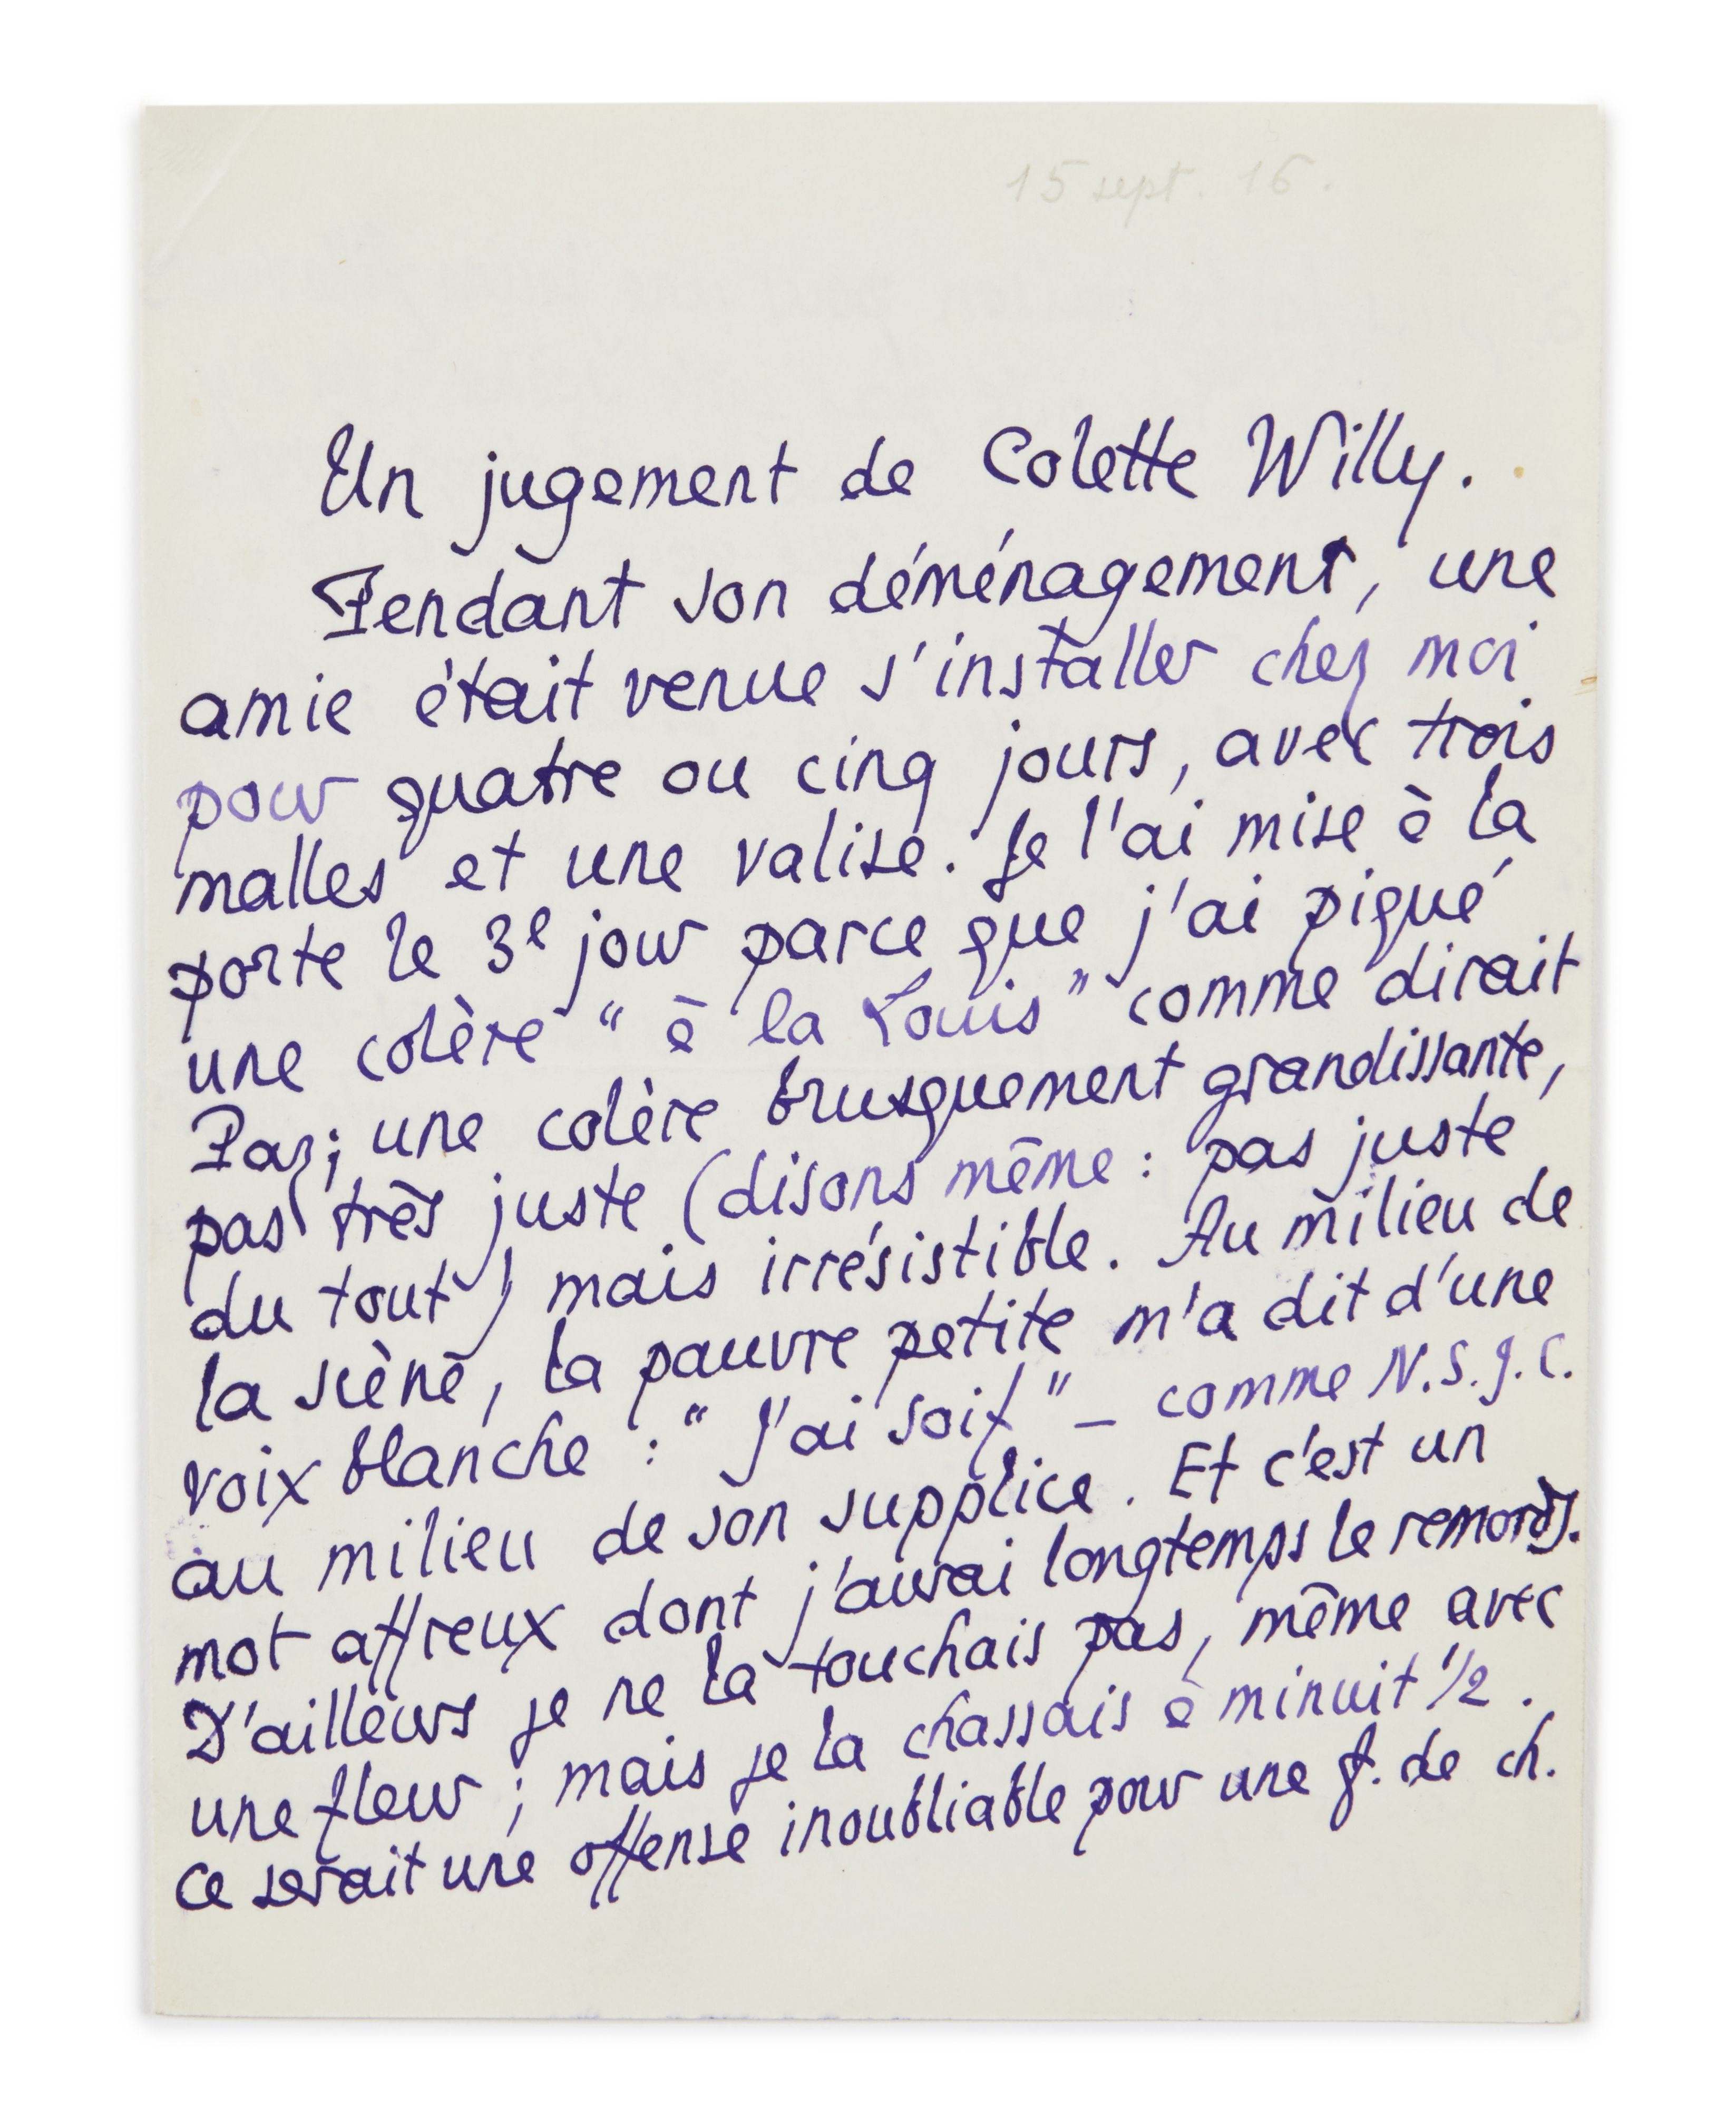 15 sept. 16.
Un jugement de Colette Willy.
Pendant son déménagement, une
amie était venue s'installer chez moi
pour quatre ou cinq jours, avec trois
malles et une valise. Je l'ai mise à la
porte le 3e jour parce que j'ai piqué
une colère " à la Louis " comme dirait
Paz ; une colère brusquement grandissante,
pas très juste (disons même : pas juste
du tout) mais irrésistible. Au milieu de
la scène, la pauvre petite m'a dit d'une
voix blanche : " J'ai soif " – comme N.S.J.C.
au milieu de son supplice. Et c'est un
mot affreux dont j'aurai longtemps le remords.
D'ailleurs je ne la touchais pas, même avec
une fleur ; mais je la chassais à minuit 1/2.
Ce serait une offense inoubliable pour une f. de ch.